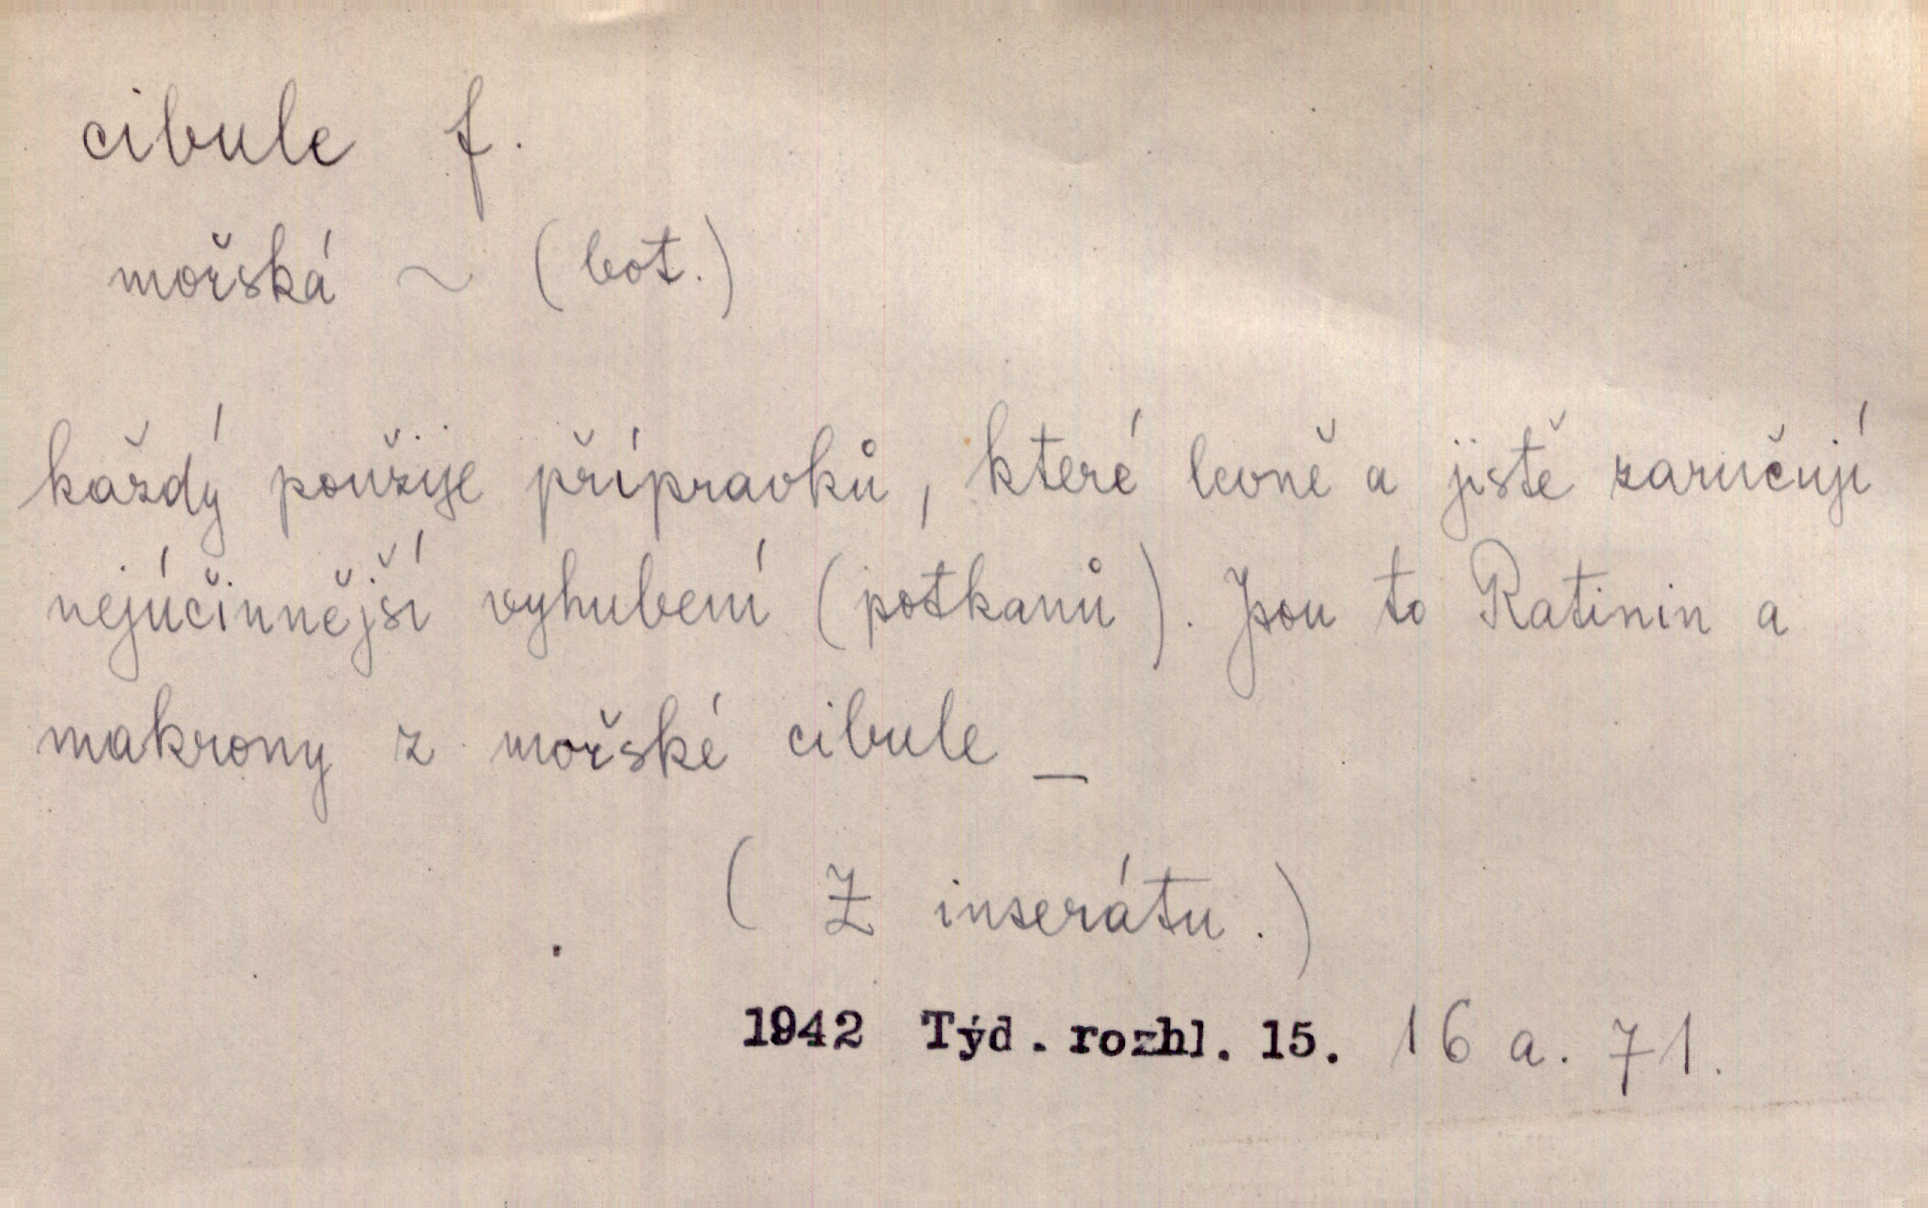 cibule f.
mořská ~ (bot.)
každý použije přípravků, které levně a jistě zaručují
nejúčinnější vyhubení (potkanů). Jsou to Ratinin a
makrony z mořské cibule _
( Z inserátu.)
1942 Týd. rozhl. 15. 16 a. 71.